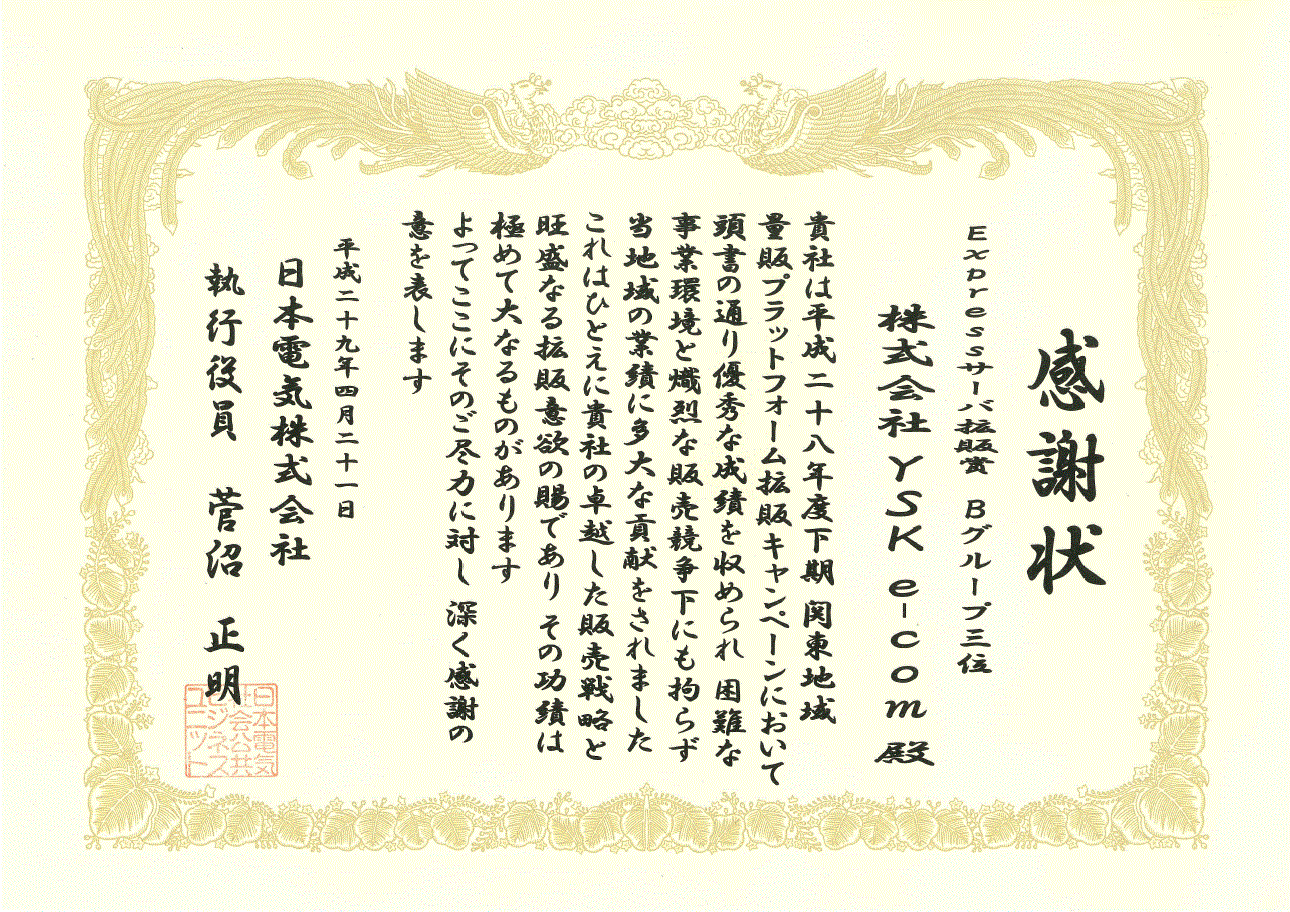 感謝状
Expressサーバ拡販賞 Bグループ三位
株式会社 YSK e-com 殿
貴社は平成二十八年度下期 関東地域
量販プラットフォーム拡販キャンペーンにおいて
頭書の通り優秀な成績を収められ 困難な
事業環境と熾烈な販売競争下にも拘らず
当地域の業績に多大な貢献をされました
これはひとえに貴社の卓越した販売戦略と
旺盛なる拡販意欲の賜であり その功績は
極めて大なるものがあります
よってここにそのご尽力に対し 深く感謝の
意を表します
平成二十九年四月二十一日
日本電気株式会社
執行役員 菅沼 正明
日本電気
社会公共
ビジネス
ユニット